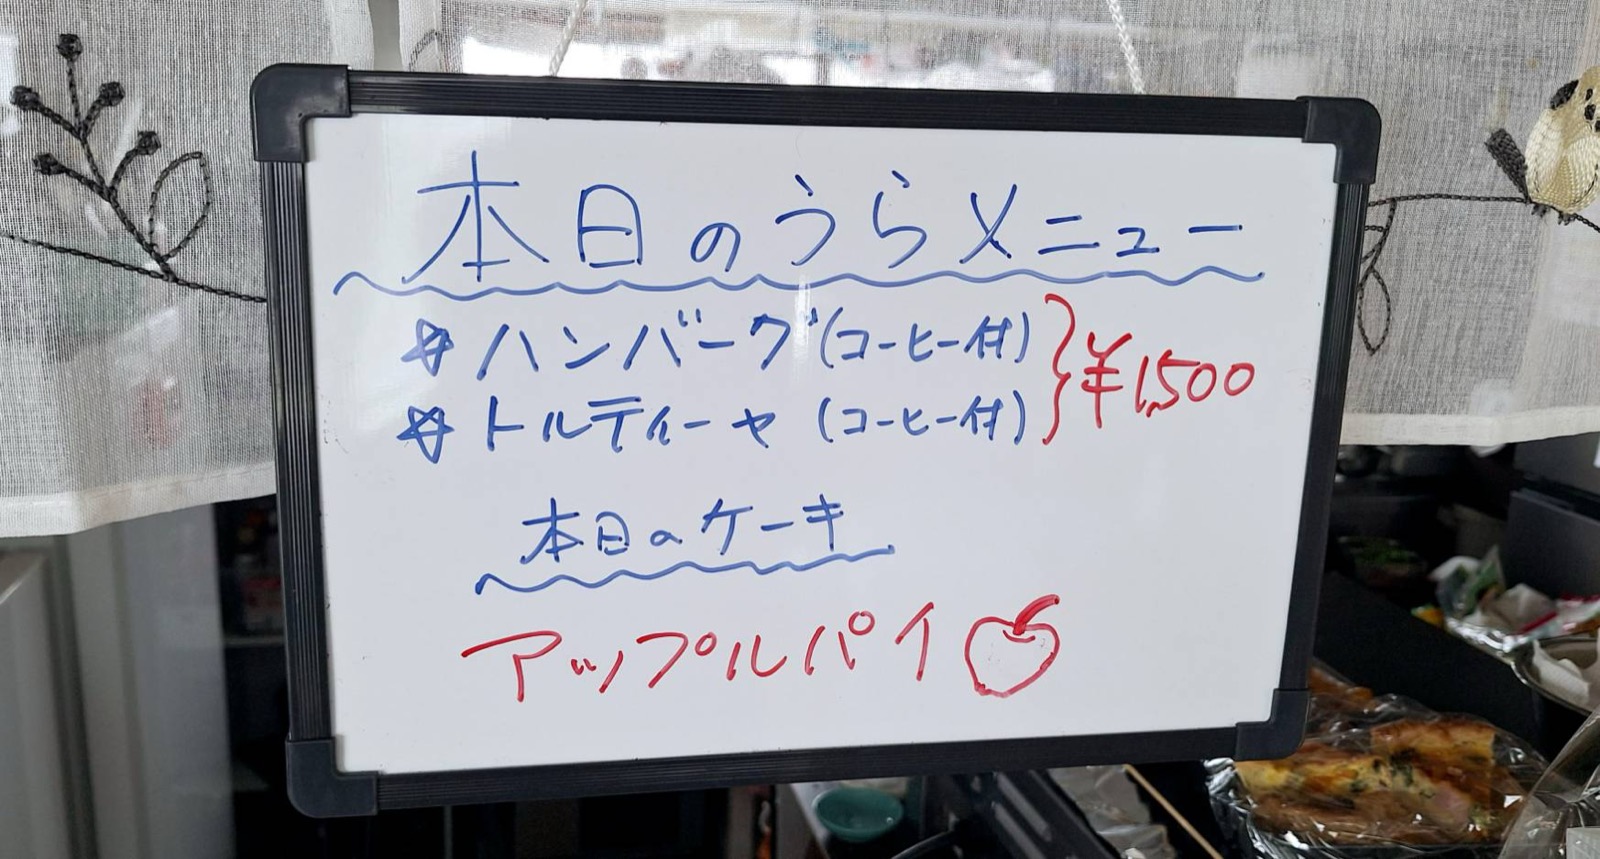 本日のうらメニュー
☆ハンバーグ(コーヒー付)
☆トルティーヤ(コーヒー付)
¥1,500
本日のケーキ
アップルパイ